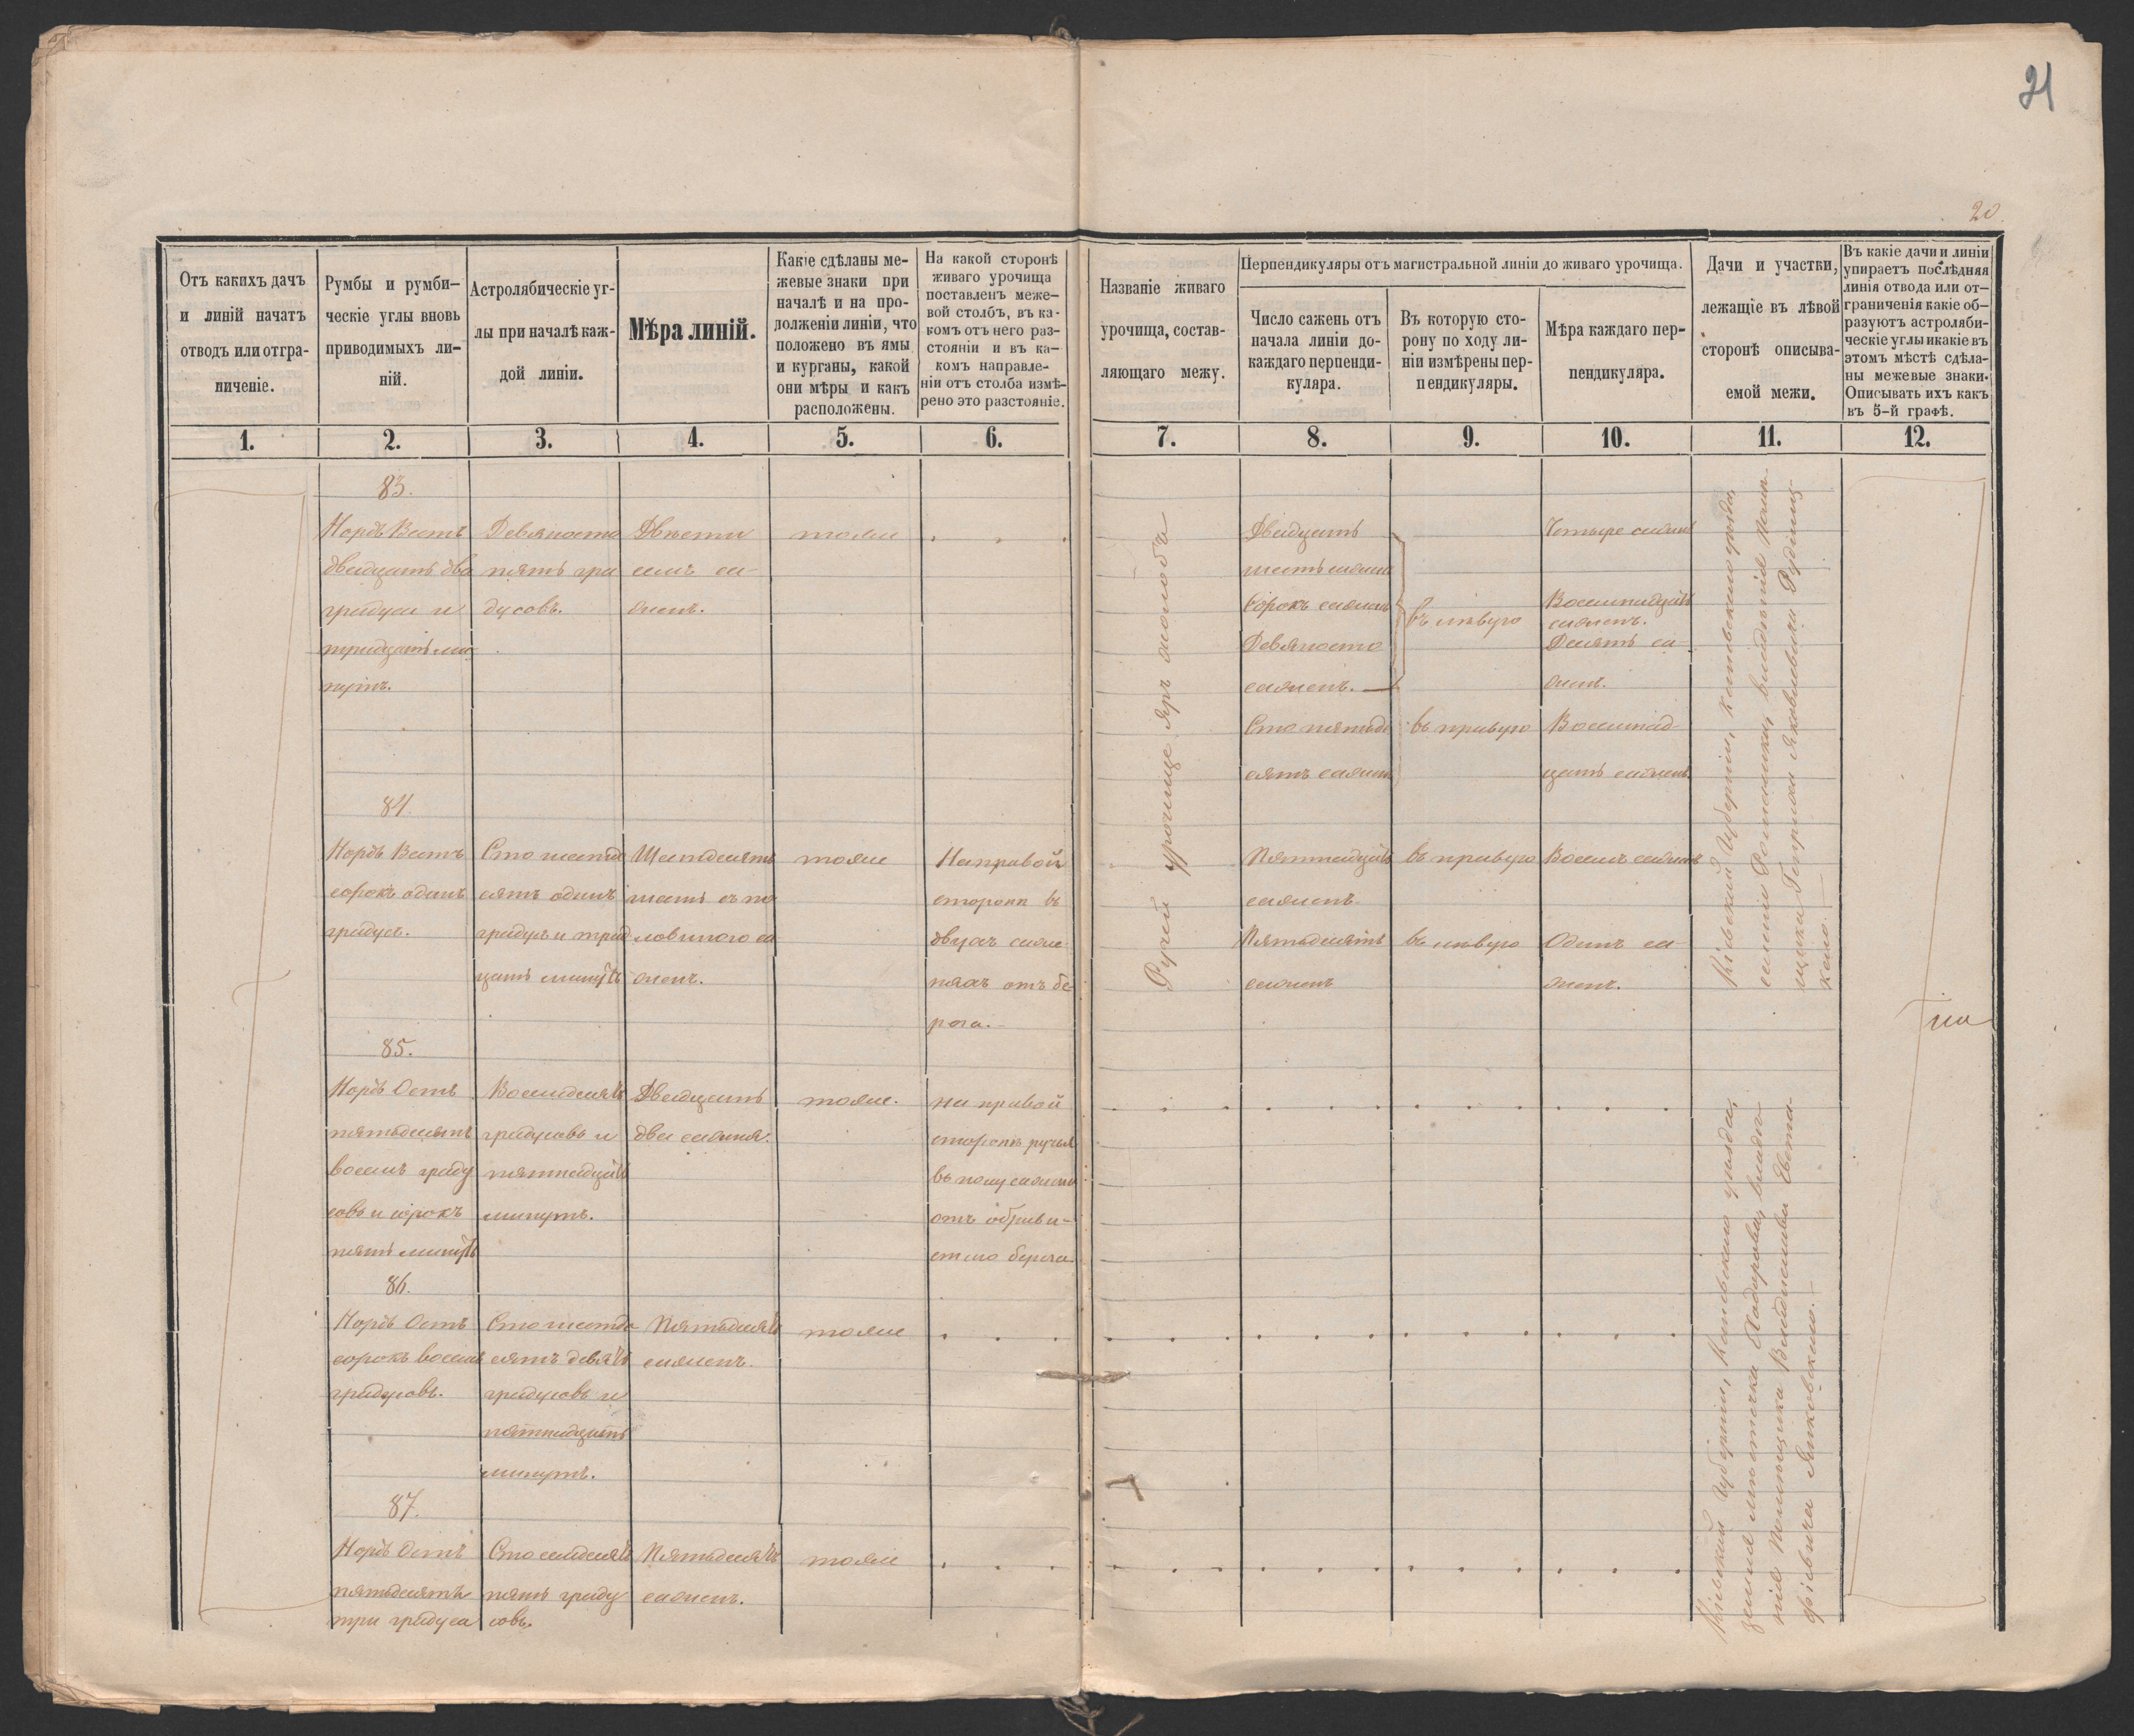 21
20.
Отъ какихъ дачъ
и линій начатъ
отводъ или отгра-
ниченіе.
Румбы и румби-
ческіе углы вновь
приводимыхъ ли-
ній.
Астролябическіе уг-
лы при началѣ каж-
дой линіи.
Мѣра линій.
Какіе сдѣланы ме-
жевые знаки при
началѣ и на про-
долженіи линіи, что
положено въ ямы
и курганы, какой
они мѣры и какъ
расположены.
На какой сторонѣ
живаго урочища
поставленъ меже-
вой столбъ, въ ка-
комъ отъ него раз-
стояніи и въ ка-
комъ направле-
ніи отъ столба измѣ-
рено это разстояніе.
Названіе живаго
урочища, состав-
ляющаго межу.
Перпендикуляры отъ магистральной линіи до живаго урочища.
Число сажень отъ
начала линіи до
каждаго перпенди-
куляра.
Въ которую сто-
рону по ходу ли-
ніи измѣрены пер-
пендикуляры.
Мѣра каждаго пер-
пендикуляра.
Дачи и участки,
лежащіе въ лѣвой
сторонѣ описыва-
емой межи.
Въ какіе дачи и линіи
упираетъ послѣдняя
линія отвода или от-
граниченія какіе об-
разуютъ астроляби-
ческіе углы и какіе въ
этомъ мѣстѣ сдѣла-
ны межевые знаки.
Описывать ихъ какъ
въ 5-й графѣ.
1. 2. 3. 4. 5. 6. 7. 8. 9. 10. 11. 12.
83.
Нордъ Вестъ
двадцать два
градуса и
тридцать ми-
нутъ.
Девяносто
пять гра
дусовъ.
Двѣсти
семь са-
женъ.
тоже
Ручей урочище яръ
Двадцать
шесть сажень
Сорокъ сажень
Девяносто
саженъ.
Сто пятьде
сятъ сажень
въ лѣвую
въ правую
Четыре сажени
Восемнадцать
саженъ.
Десять са-
женъ.
Восемнад-
цать саженъ
84.
Нордъ Вестъ
сорокъ одинъ
градусъ.
Сто шестьде
сятъ одинъ
градусъ и трид
цать минутъ
Шестьдесятъ
шесть съ по
ловиною са
женъ.
тоже
На правой
сторонѣ въ
двухъ саже
няхъ отъ бе
рега.
Пятнадцать
саженъ
Пятьдесятъ
саженъ
въ правую
въ лѣвую
Восемь сажень
Одинъ са
женъ.
Кіевской Губерніи, Каневскаго уѣзда,
селеніе владѣнія Помѣ-
щика Яковлева
85.
Нордъ Остъ
пятьдесятъ
восемь граду
совъ и сорокъ
пять минутъ
Восемьдесятъ
градусовъ и
пятнадцать
минутъ.
Двадцать
два саженя.
тоже.
на правой
сторонѣ ручья
въ полусажени
отъ обрыви-
стаго берега.
86.
Нордъ Остъ
сорокъ восемь
градусовъ.
Сто шестьде
сятъ девять
градусовъ и
пятнадцать
минутъ.
Пятьдесятъ
саженъ.
тоже
87.
Нордъ Остъ
пятьдесятъ
три градуса
Сто семьдесятъ
пять граду
совъ.
Пятьдесятъ
саженъ.
тоже
Кіевской Губерніи, Каневскаго уѣзда,
земля мѣстечка владѣ-
нія Помѣщика Владислава Евста-
фіевича Янковскаго.